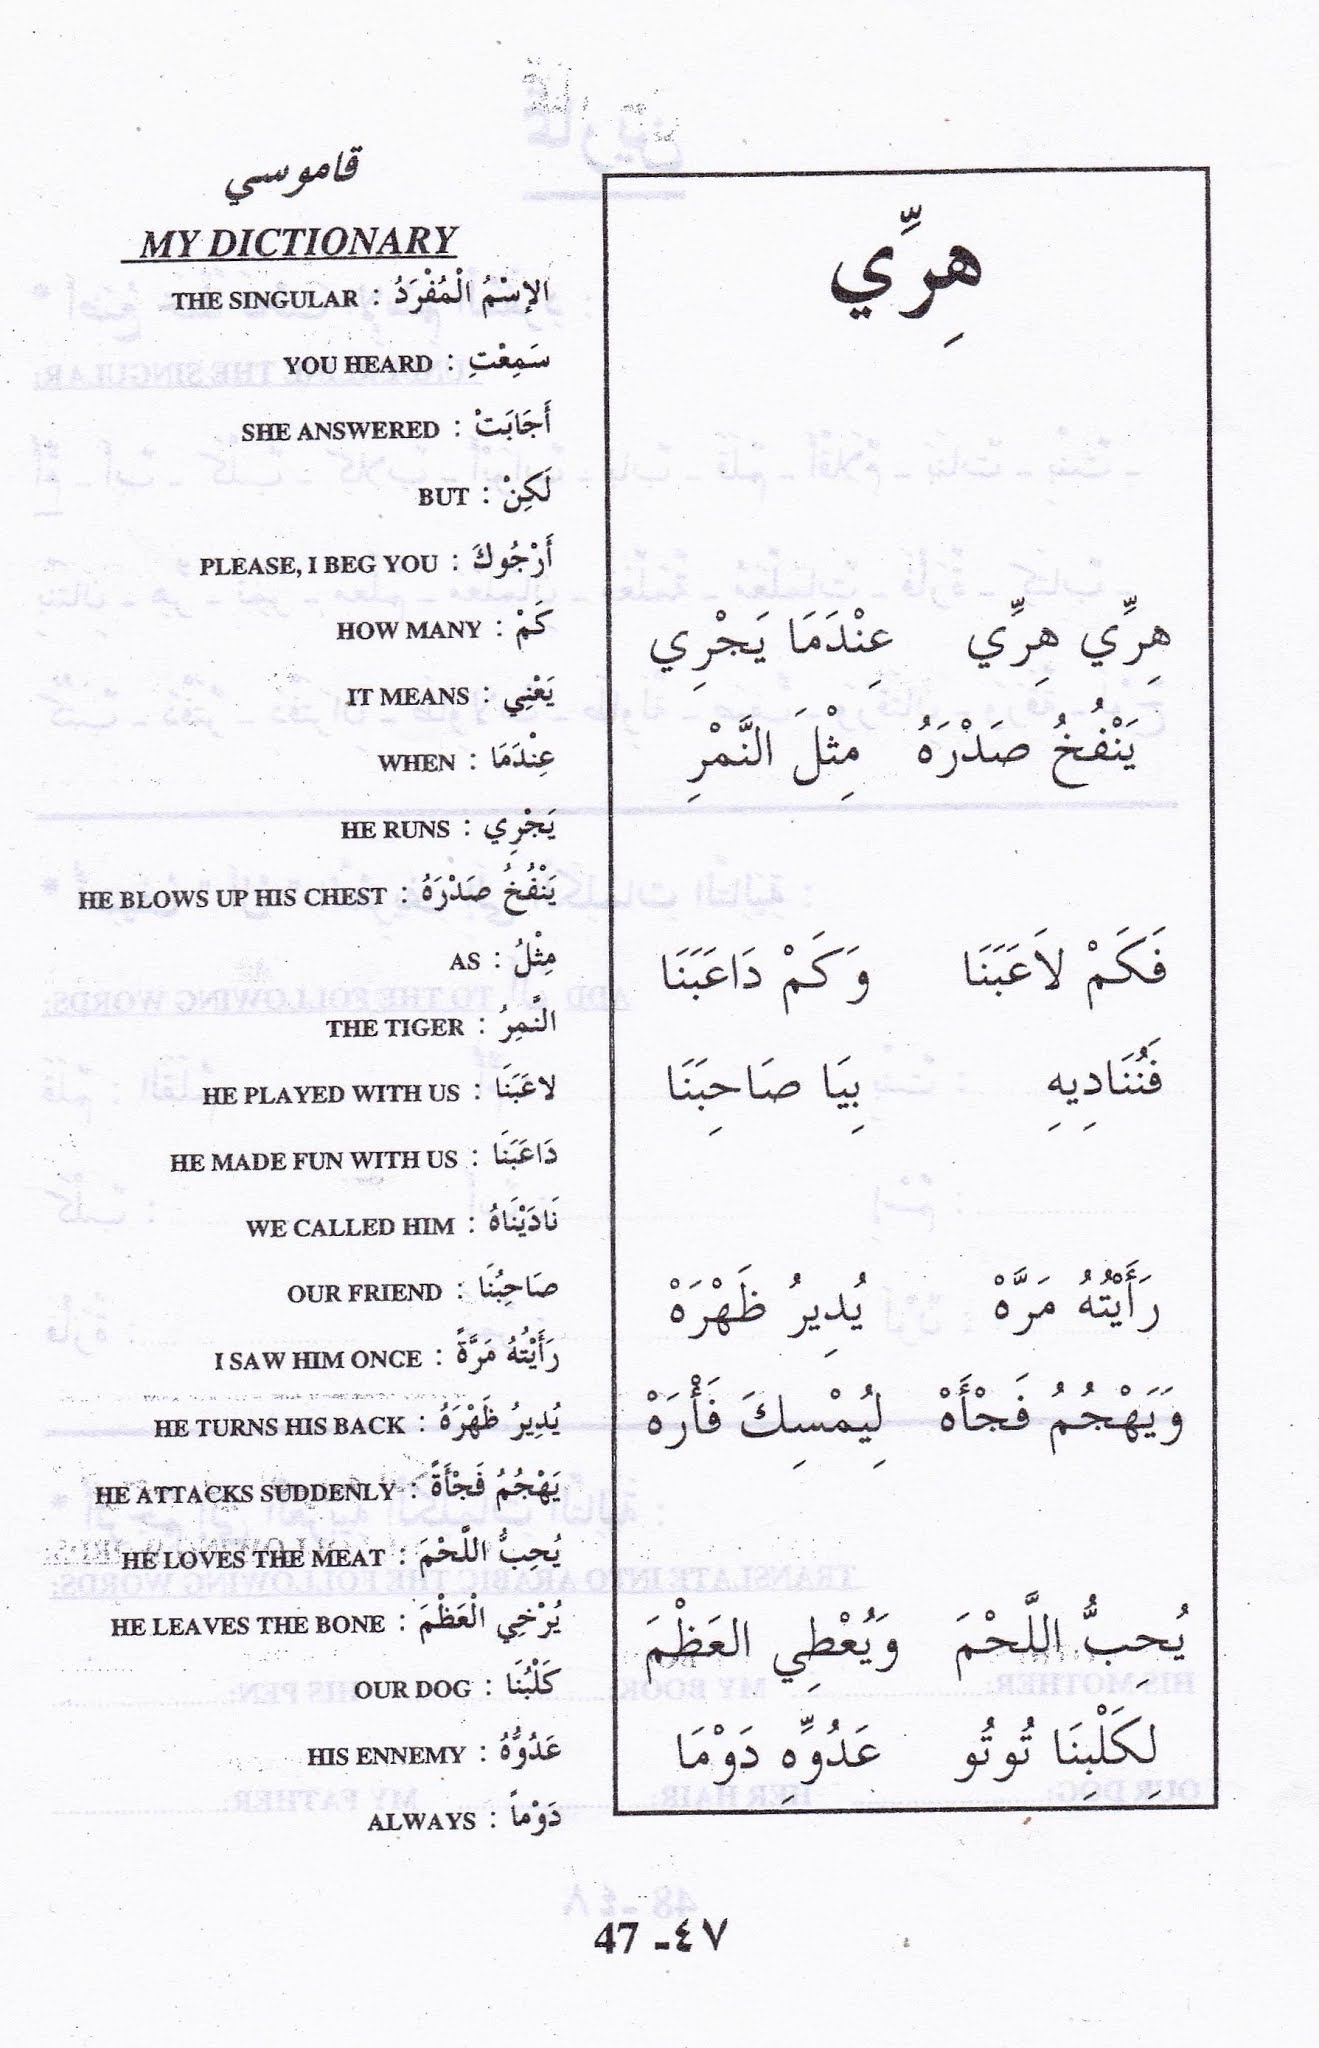 قاموسي
MY DICTIONARY
THE SINGULAR : الإسْمُ الْمُفْرَدُ
YOU HEARD : سَمِعْتِ
SHE ANSWERED : أَجَابَتْ
BUT : لَكِنْ
PLEASE, I BEG YOU : أَرْجُوكَ
HOW MANY : كَمْ
IT MEANS : يَعْنِي
WHEN : عِنْدَمَا
HE RUNS : يَجْرِي
HE BLOWS UP HIS CHEST : يَنْفُخُ صَدْرَهُ
AS : مِثْلُ
THE TIGER : النَّمِرُ
HE PLAYED WITH US : لاعَبَنَا
HE MADE FUN WITH US : دَاعَبَنَا
WE CALLED HIM : نَادَيْنَاهُ
OUR FRIEND : صَاحِبُنَا
I SAW HIM ONCE : رَأَيْتُهُ مَرَّةً
HE TURNS HIS BACK : يُدِيرُ ظَهْرَهُ
HE ATTACKS SUDDENLY : يَهْجُمُ فَجْأَةً
HE LOVES THE MEAT : يُحِبُّ اللَّحْمَ
HE LEAVES THE BONE : يُرْخِي الْعَظْمَ
OUR DOG : كَلْبُنَا
HIS ENNEMY : عَدُوُّهُ
ALWAYS : دَوْماً
هِرِّي
هِرِّي هِرِّي عِنْدَمَا يَجْرِي
يَنْفُخُ صَدْرَهُ مِثْلَ النَّمْرِ
فَكَمْ لاَعَبَنَا وَكَمْ دَاعَبَنَا
فَنُنَادِيهِ بِيَا صَاحِبَنَا
رَأَيْتُهُ مَرَّهْ يُدِيرُ ظَهْرَهْ
وَيَهْجُمُ فَجْأَهْ لِيُمْسِكَ فَأْرَهْ
يُحِبُّ اللَّحْمَ وَيُعْطِي العَظْمَ
لِكَلْبِنَا تُوتُو عَدُوِّهِ دَوْمَا
47 -٤٧